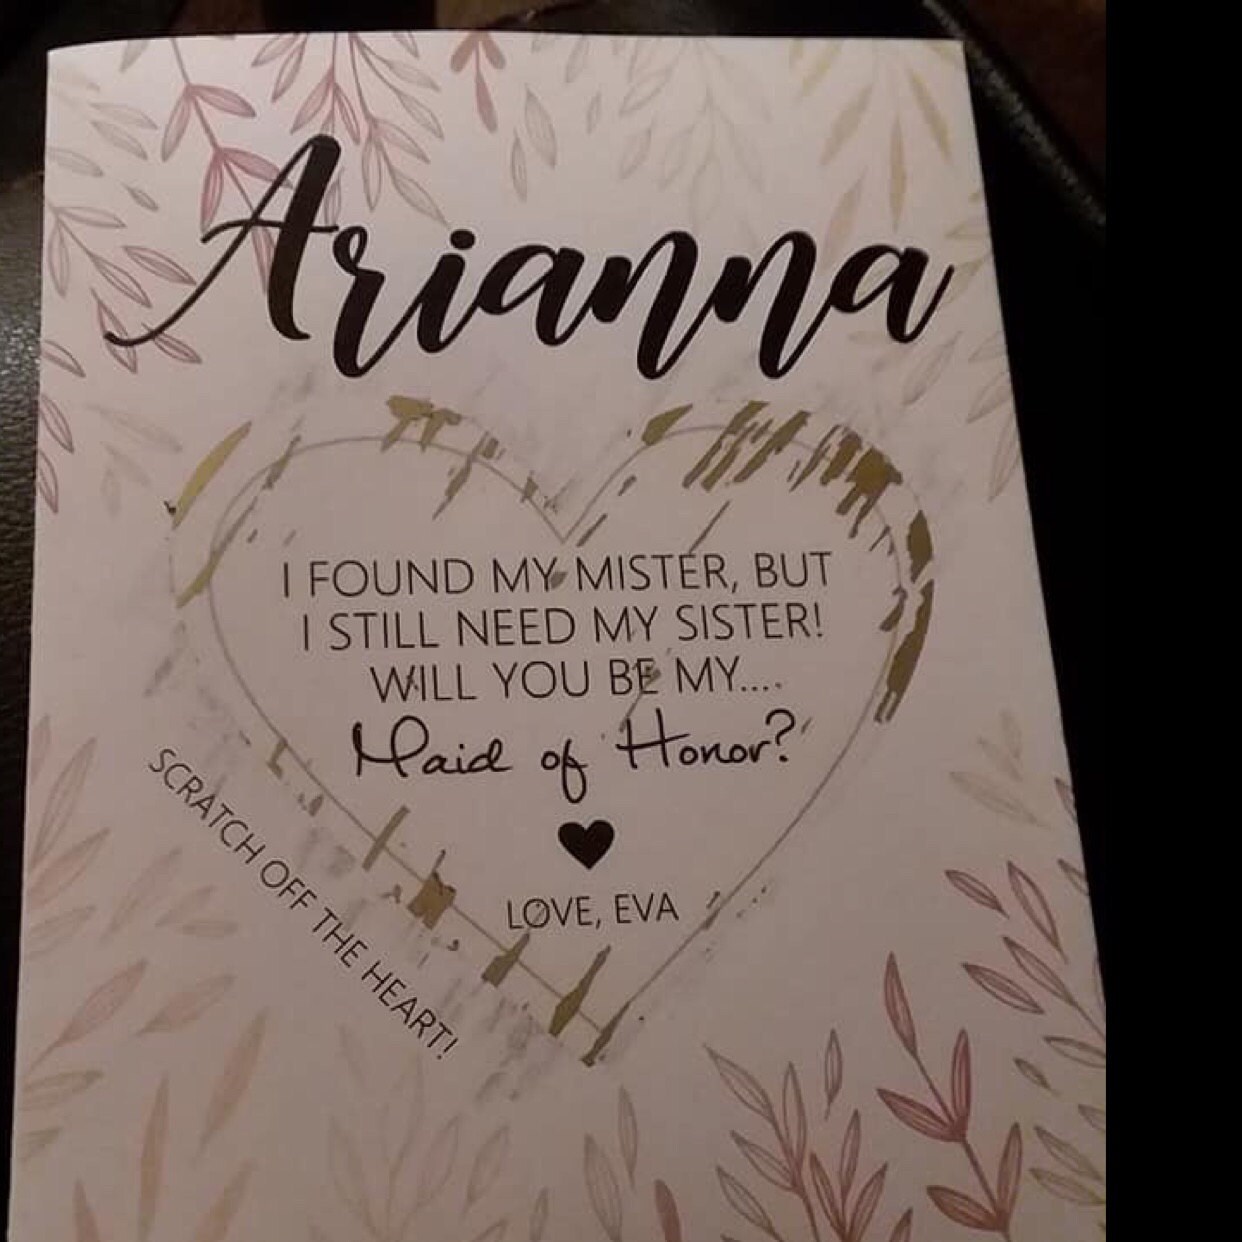 Arianna
I FOUND MY MISTER, BUT
I STILL NEED MY SISTER!
WILL YOU BE MY....
Maid of Honor?
LOVE, EVA
SCRATCH OFF THE HEART!